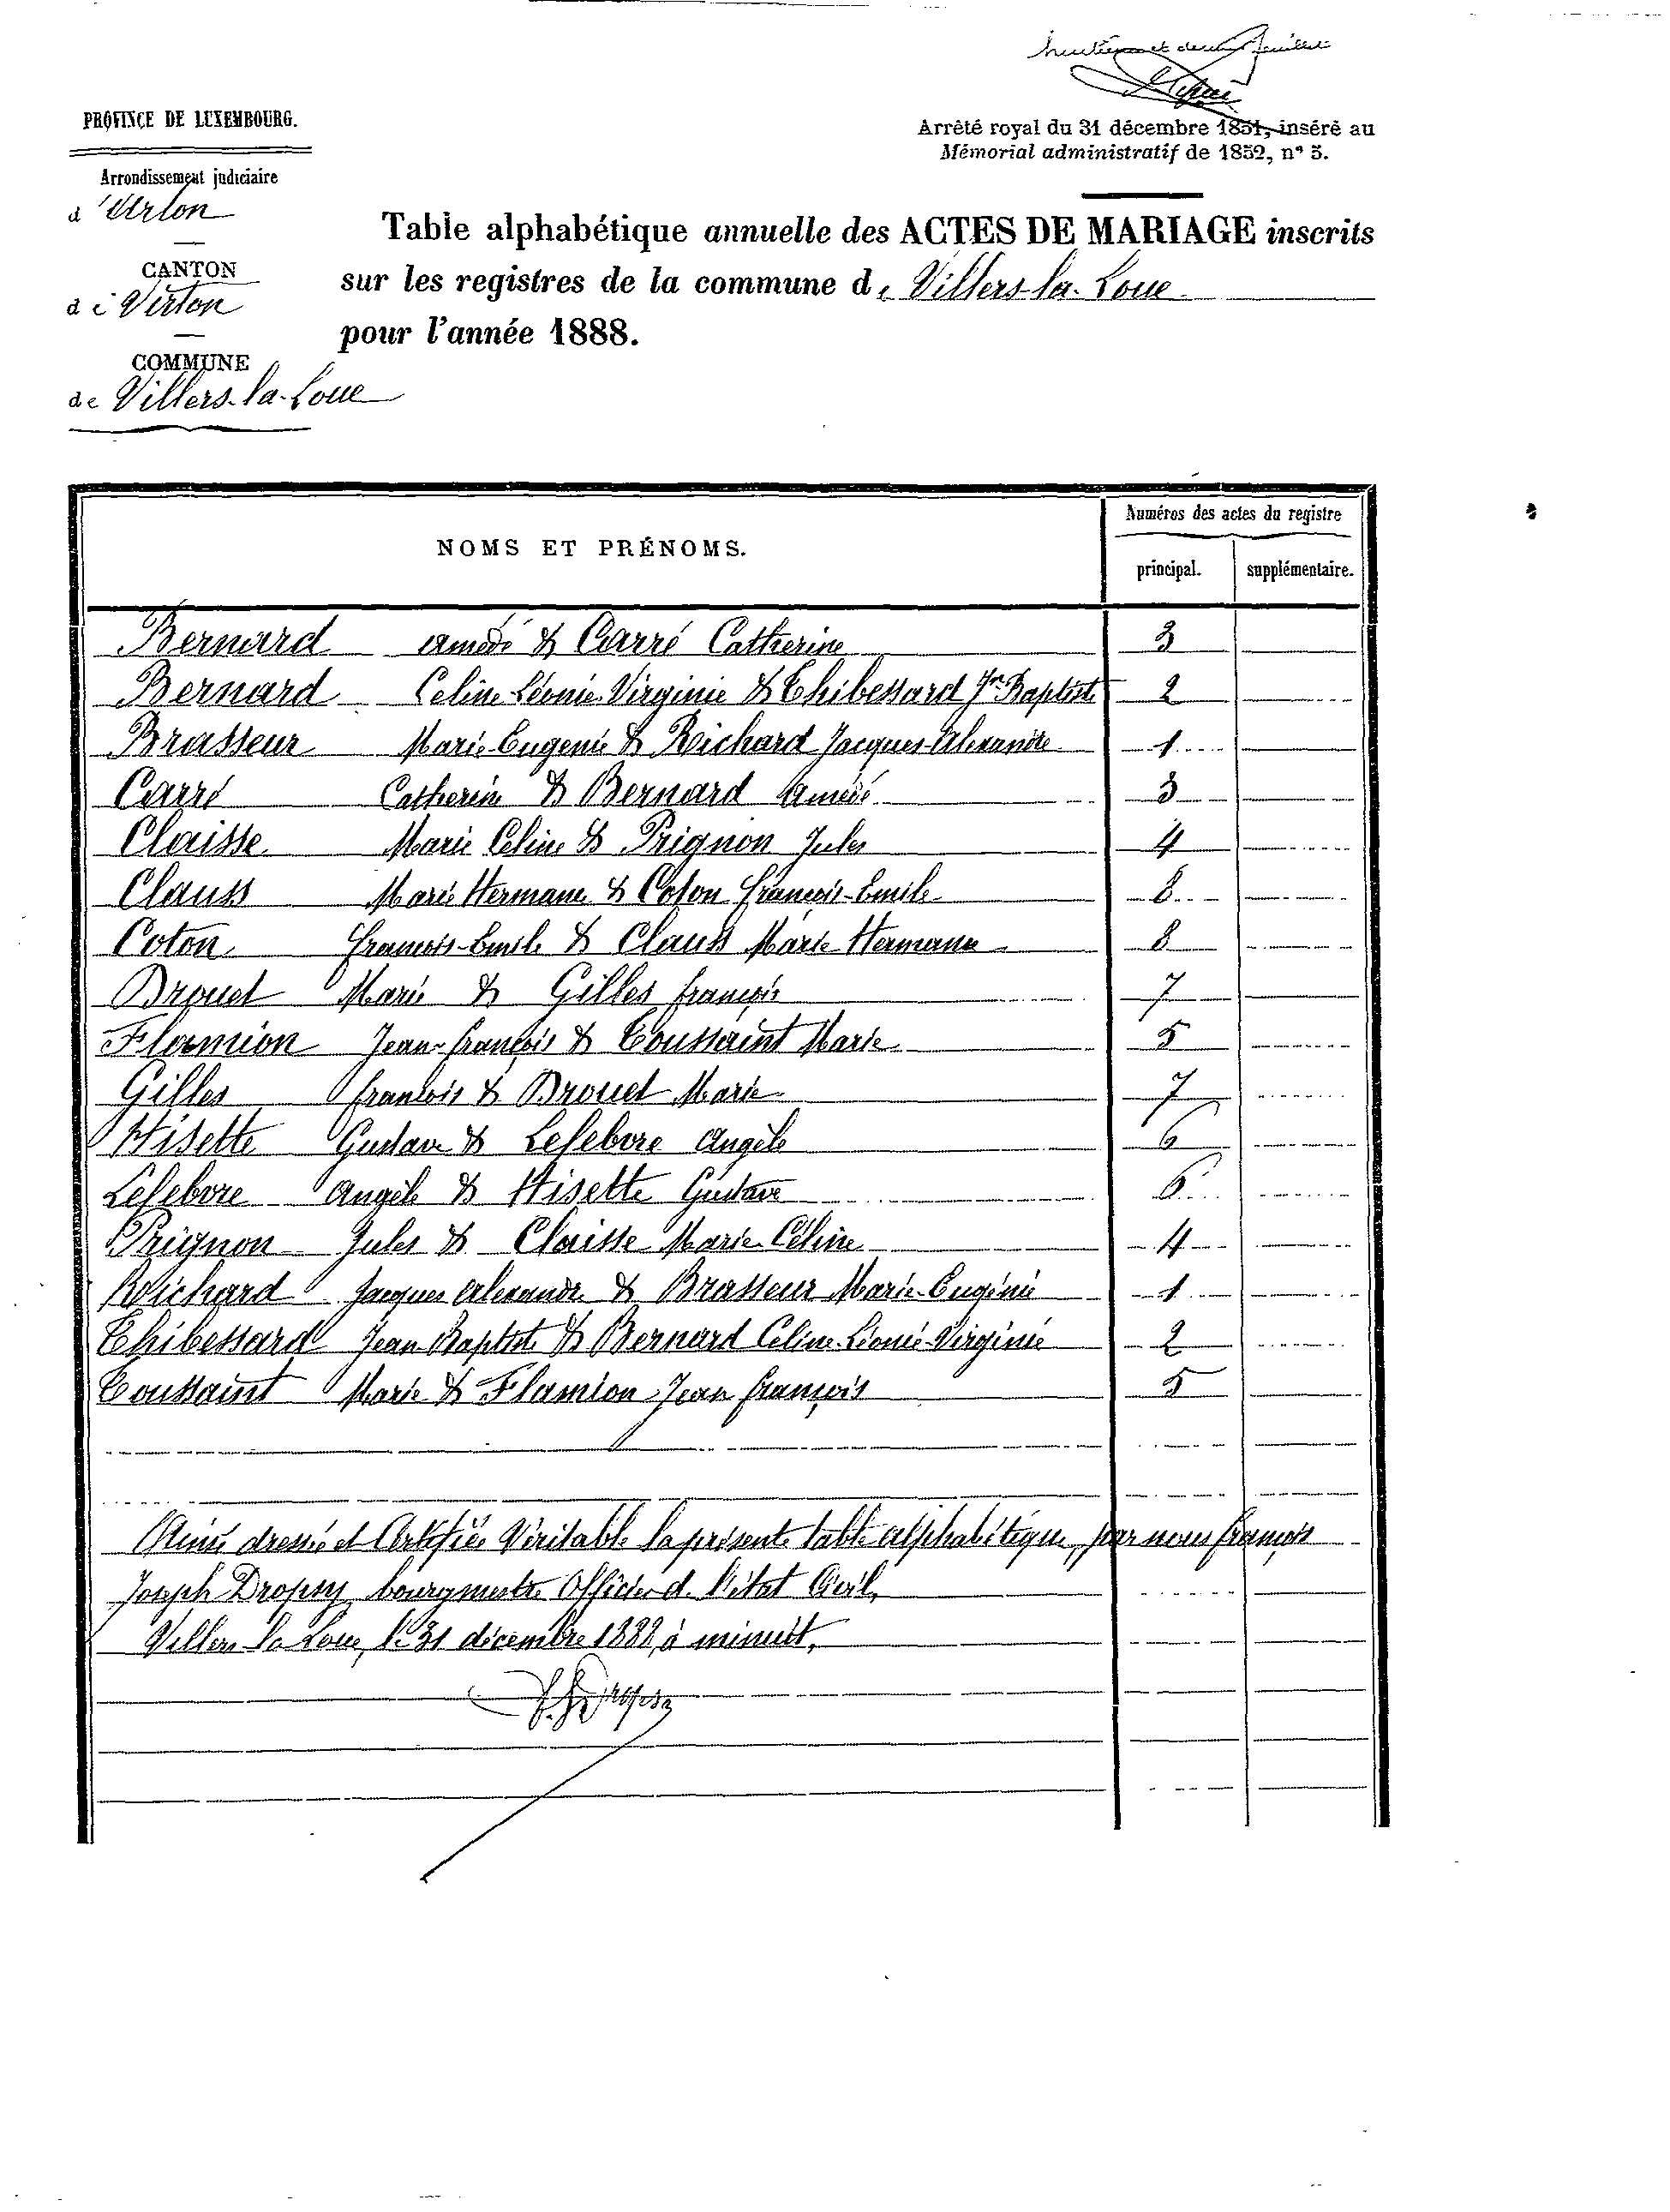 huitième et dernier feuillet
PROVINCE DE LUXEMBOURG.
Arrêté royal du 31 décembre 1851, inséré au
Mémorial administratif de 1852, n° 5.
Arrondissement judiciaire
d'Arlon
CANTON
de Virton
COMMUNE
de Villers-la-Loue
Table alphabétique annuelle des ACTES DE MARIAGE inscrits
sur les registres de la commune de Villers-la-Loue
pour l'année 1888.
NOMS ET PRÉNOMS.
Numéros des actes du registre
principal. supplémentaire.
Bernard amédé & Carré Catherine 3
Bernard Celine Léonie Virginie & Thibessard Jn Baptiste 2
Brasseur Marie Eugenie & Richard Jacques Alexandre 1
Carré Catherine & Bernard Amédé 3
Claisse Marie Celine & Prignon Jules 4
Clauss Marie Hermane & Coton François-Emile 8
Coton François-Emile & Clauss Marie Hermane 8
Drouet Marie & Gilles françois 7
Flamion Jean-françois & Toussaint Marie 5
Gilles françois & Drouet Marie 7
Hisette Gustave & Lefebvre Angèle 6
Lefebvre Angèle & Hisette Gustave 6
Prignon Jules & Claisse Marie Céline 4
Richard Jacques Alexandre & Brasseur Marie-Eugénie 1
Thibessard Jean Baptiste & Bernard Celine-Léonie-Virginie 2
Toussaint Marie & Flamion Jean françois 5
Ainsi dressé et Certifiée Véritable la présente table alphabétique, par nous françois
Joseph Dropsy, bourgmestre Officier de l'état Civil,
Villers la Loue, le 31 décembre 1888, à minuit,
F. J. Dropsy